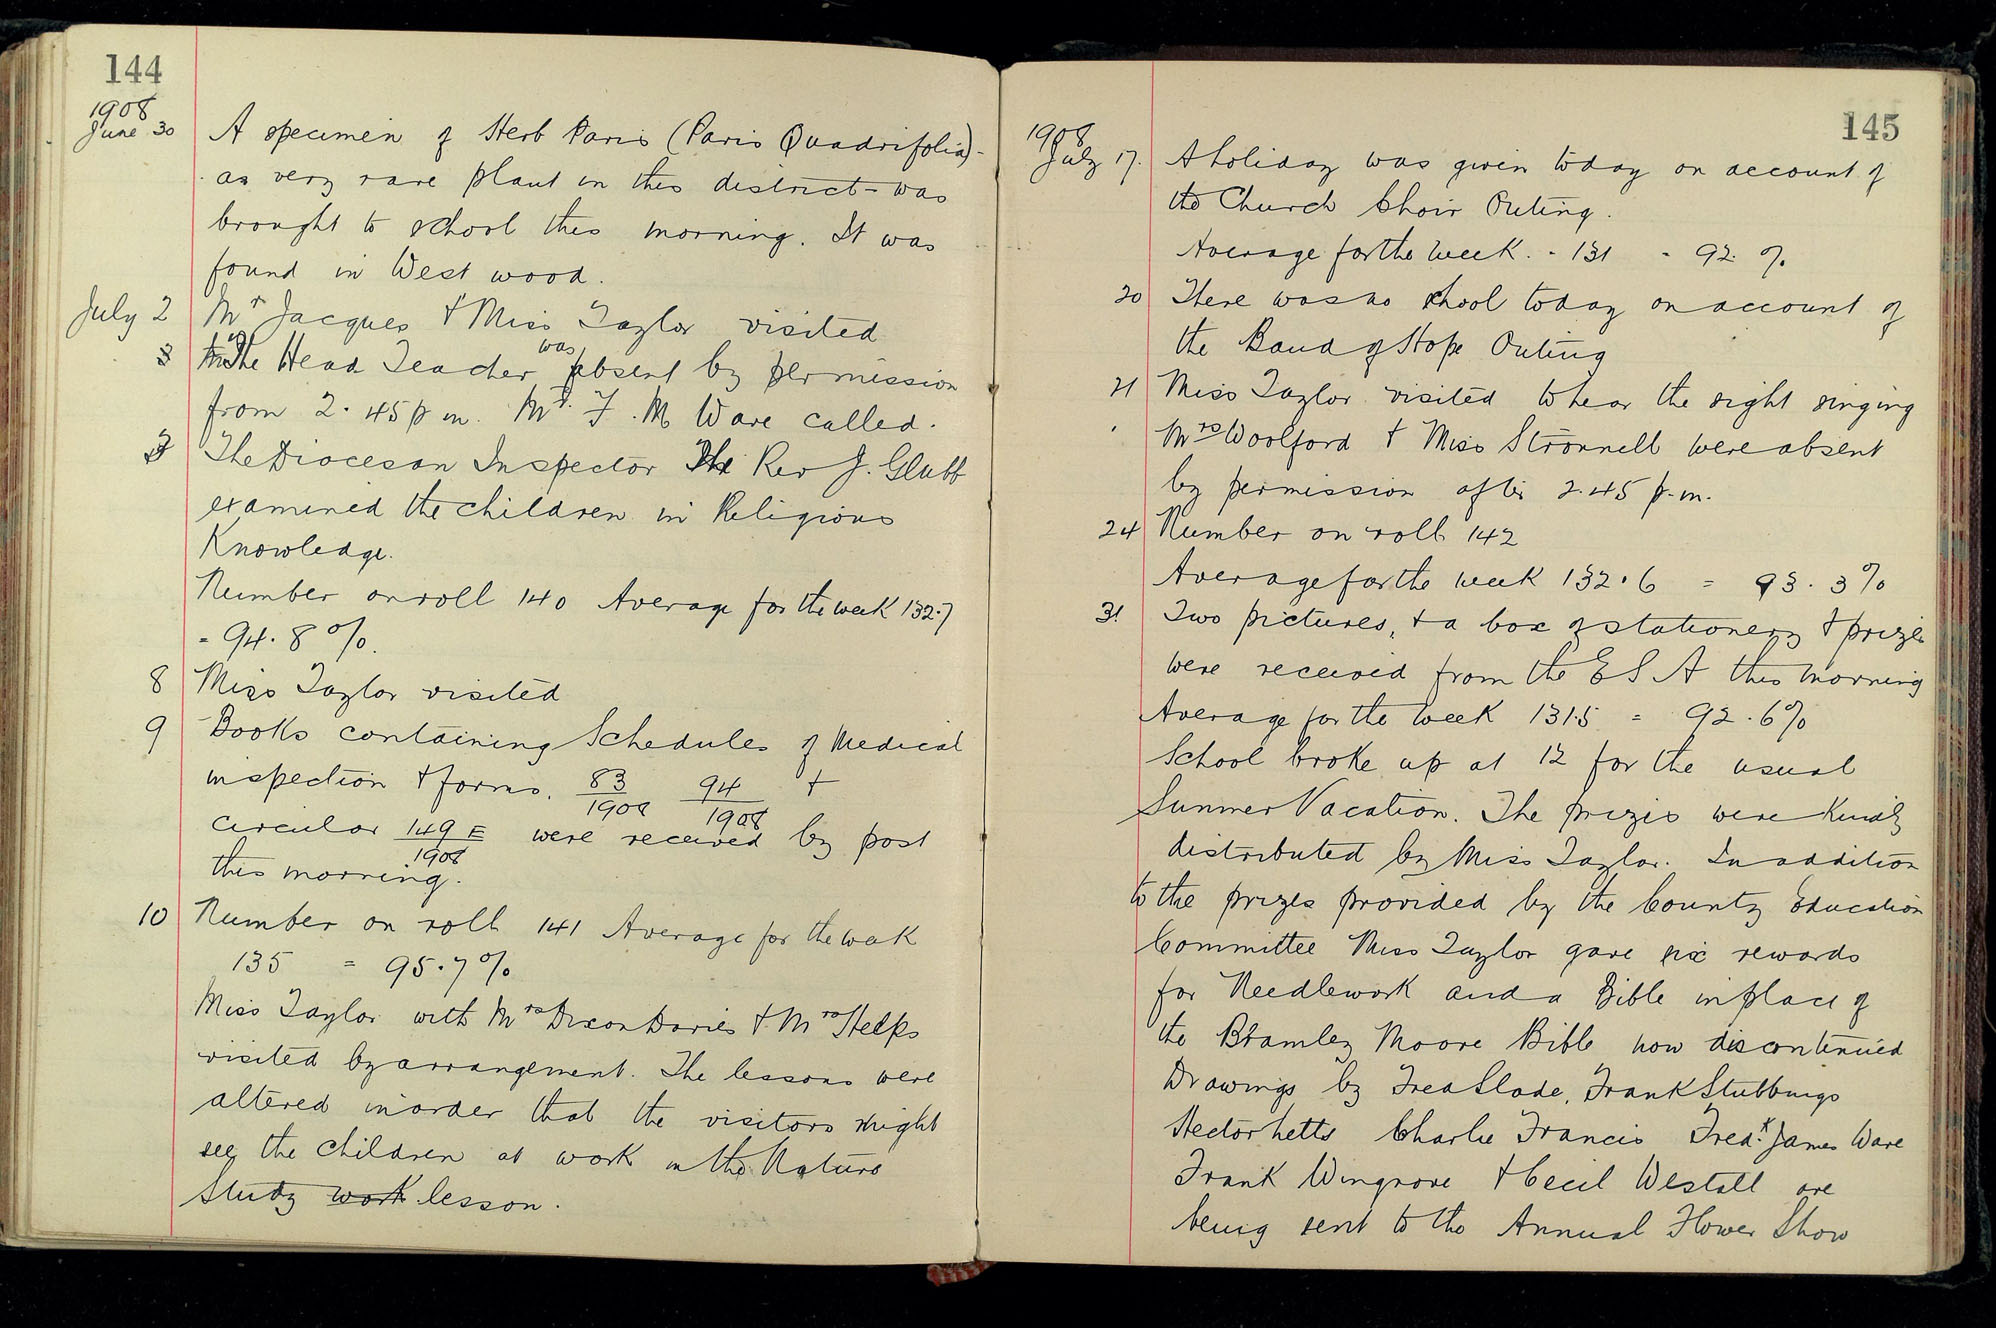 144
1908
June 30 A specimen of Herb Paris (Paris Quadrifolia)-
a very rare plant in this district - was
brought to school this morning. It was
found in West wood.
July 2 Mr Jacques & Miss Taylor visited
3 The Head Teacher was absent by permission
from 2.45 p m. Mr. F. M Ware called.
3 The Diocesan Inspector The Rev J. Glubb
examined the children in Religious
Knowledge.
Number on roll 140 Average for the week 132.7
= 94.8 %.
8 Miss Taylor visited
9 Books containing Schedules of Medical
inspection & forms. 83/1908 94/1908 &
circular 149 E/1908 were received by post
this morning.
10 Number on roll 141 Average for the week
135 = 95.7 %
Miss Taylor with Mrs Dixon Davies & Mrs Helps
visited by arrangement. The lessons were
altered in order that the visitors might
see the children at work in the Nature
Study work lesson.
145
1908
July 17. A holiday was given today on account of
the Church Choir Outing.
Average for the week. - 131 = 92. %
20 There was no school today on account of
the Band of Hope Outing
21 Miss Taylor visited to hear the sight singing
Mrs Woolford & Miss Stronnell were absent
by permission after 2.45 p.m.
24 Number on roll 142
Average for the week 132.6 = 93.3 %
31 Two pictures, & a box of stationery & prizes
were received from the E S A this morning
Average for the week 131.5 = 92.6 %
School broke up at 12 for the usual
Summer Vacation. The prizes were kindly
distributed by Miss Taylor. In addition
to the prizes provided by the County Education
Committee Miss Taylor gave six rewards
for Needlework and a Bible in place of
the Bramley Moore Bible now discontinued
Drawings by Fred Slade, Frank Stubbings
Hector Letts Charlie Francis Fredk. James Ware
Frank Wingrove & Cecil Westall are
being sent to the Annual Flower Show